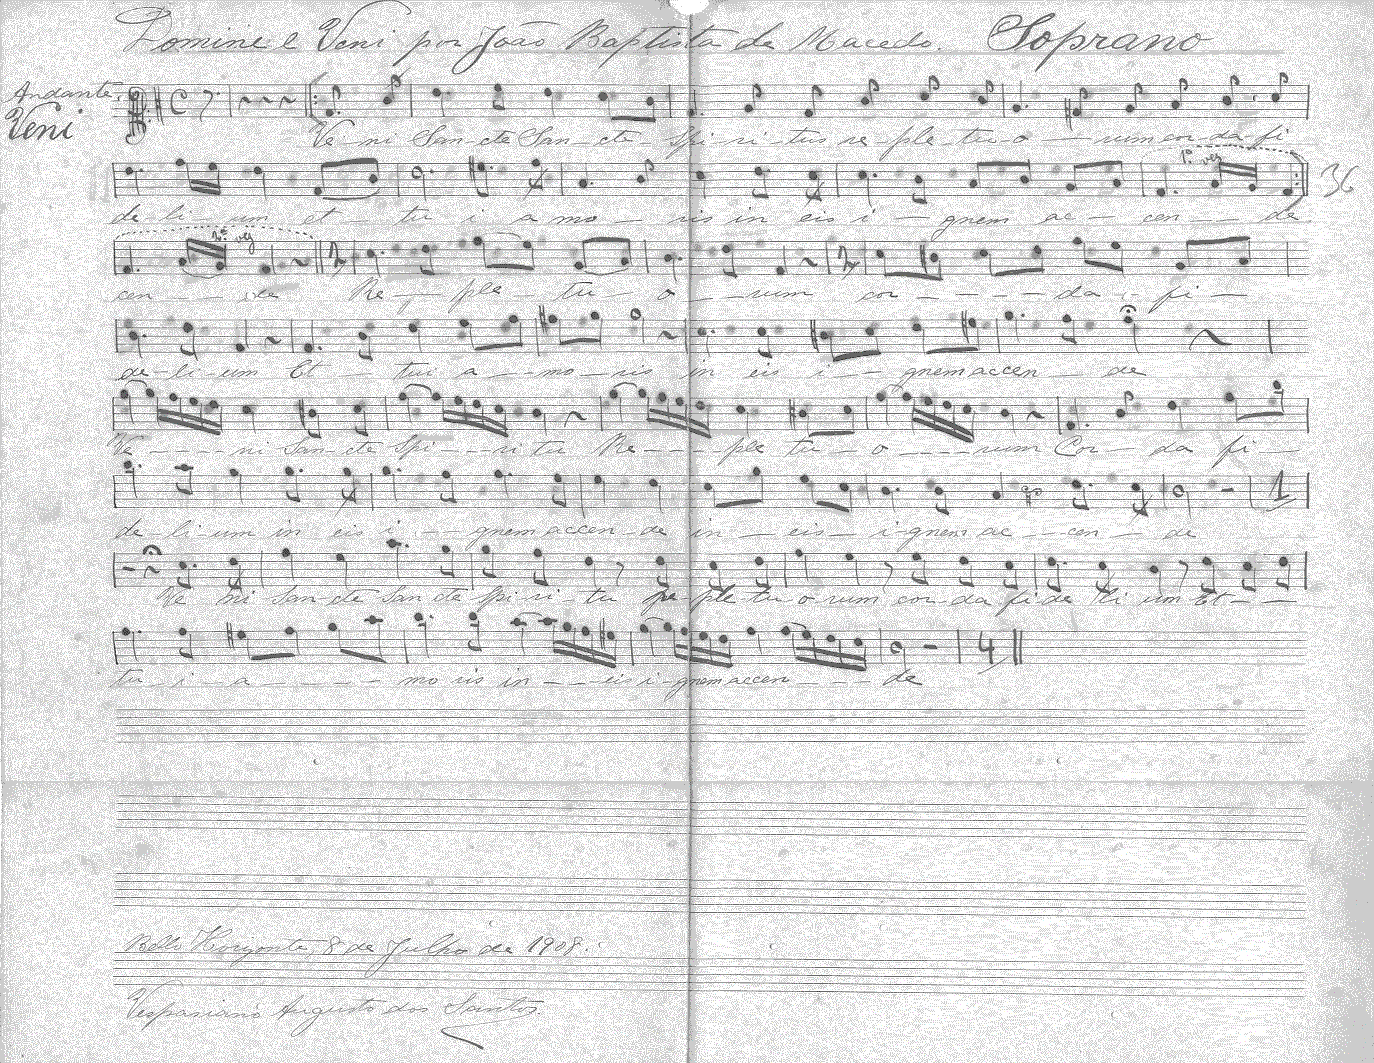 Domine e Veni por João Baptista de Macedo. Soprano
Andante.
Veni
Ve - ni San-cte San - cte - Spi-ri-tus re ple-tu-o - rum cor-da-fi
1ª vez
36
de-li-um et - tu i a mo - ris in eis i - gnem ac - cen - - de
2ª vez
cen - - - de Re - - ple - tu - o - - rum cor - - - - da - fi -
de-li-um Et - tui a - - mo-ris in eis i - - gnem accen - de
Ve - - - - ni San-cte Spi - - ri tu Re - - - - ple tu - o - - - - rum Cor - da fi -
de-li-um in eis i - - gnem accen-de in - eis - i-gnem ac - - cen - de
1
Ve ni San-cte San cte Spi-ri-tu re-ple tu-o-rum cor-da fi de li um Et - -
tu - i - a - - - - mo ris in - - - eis i-gnem accen - - - de
4
Bello Horizonte, 8 de Julho de 1908.
Vespasiano Augusto dos Santos